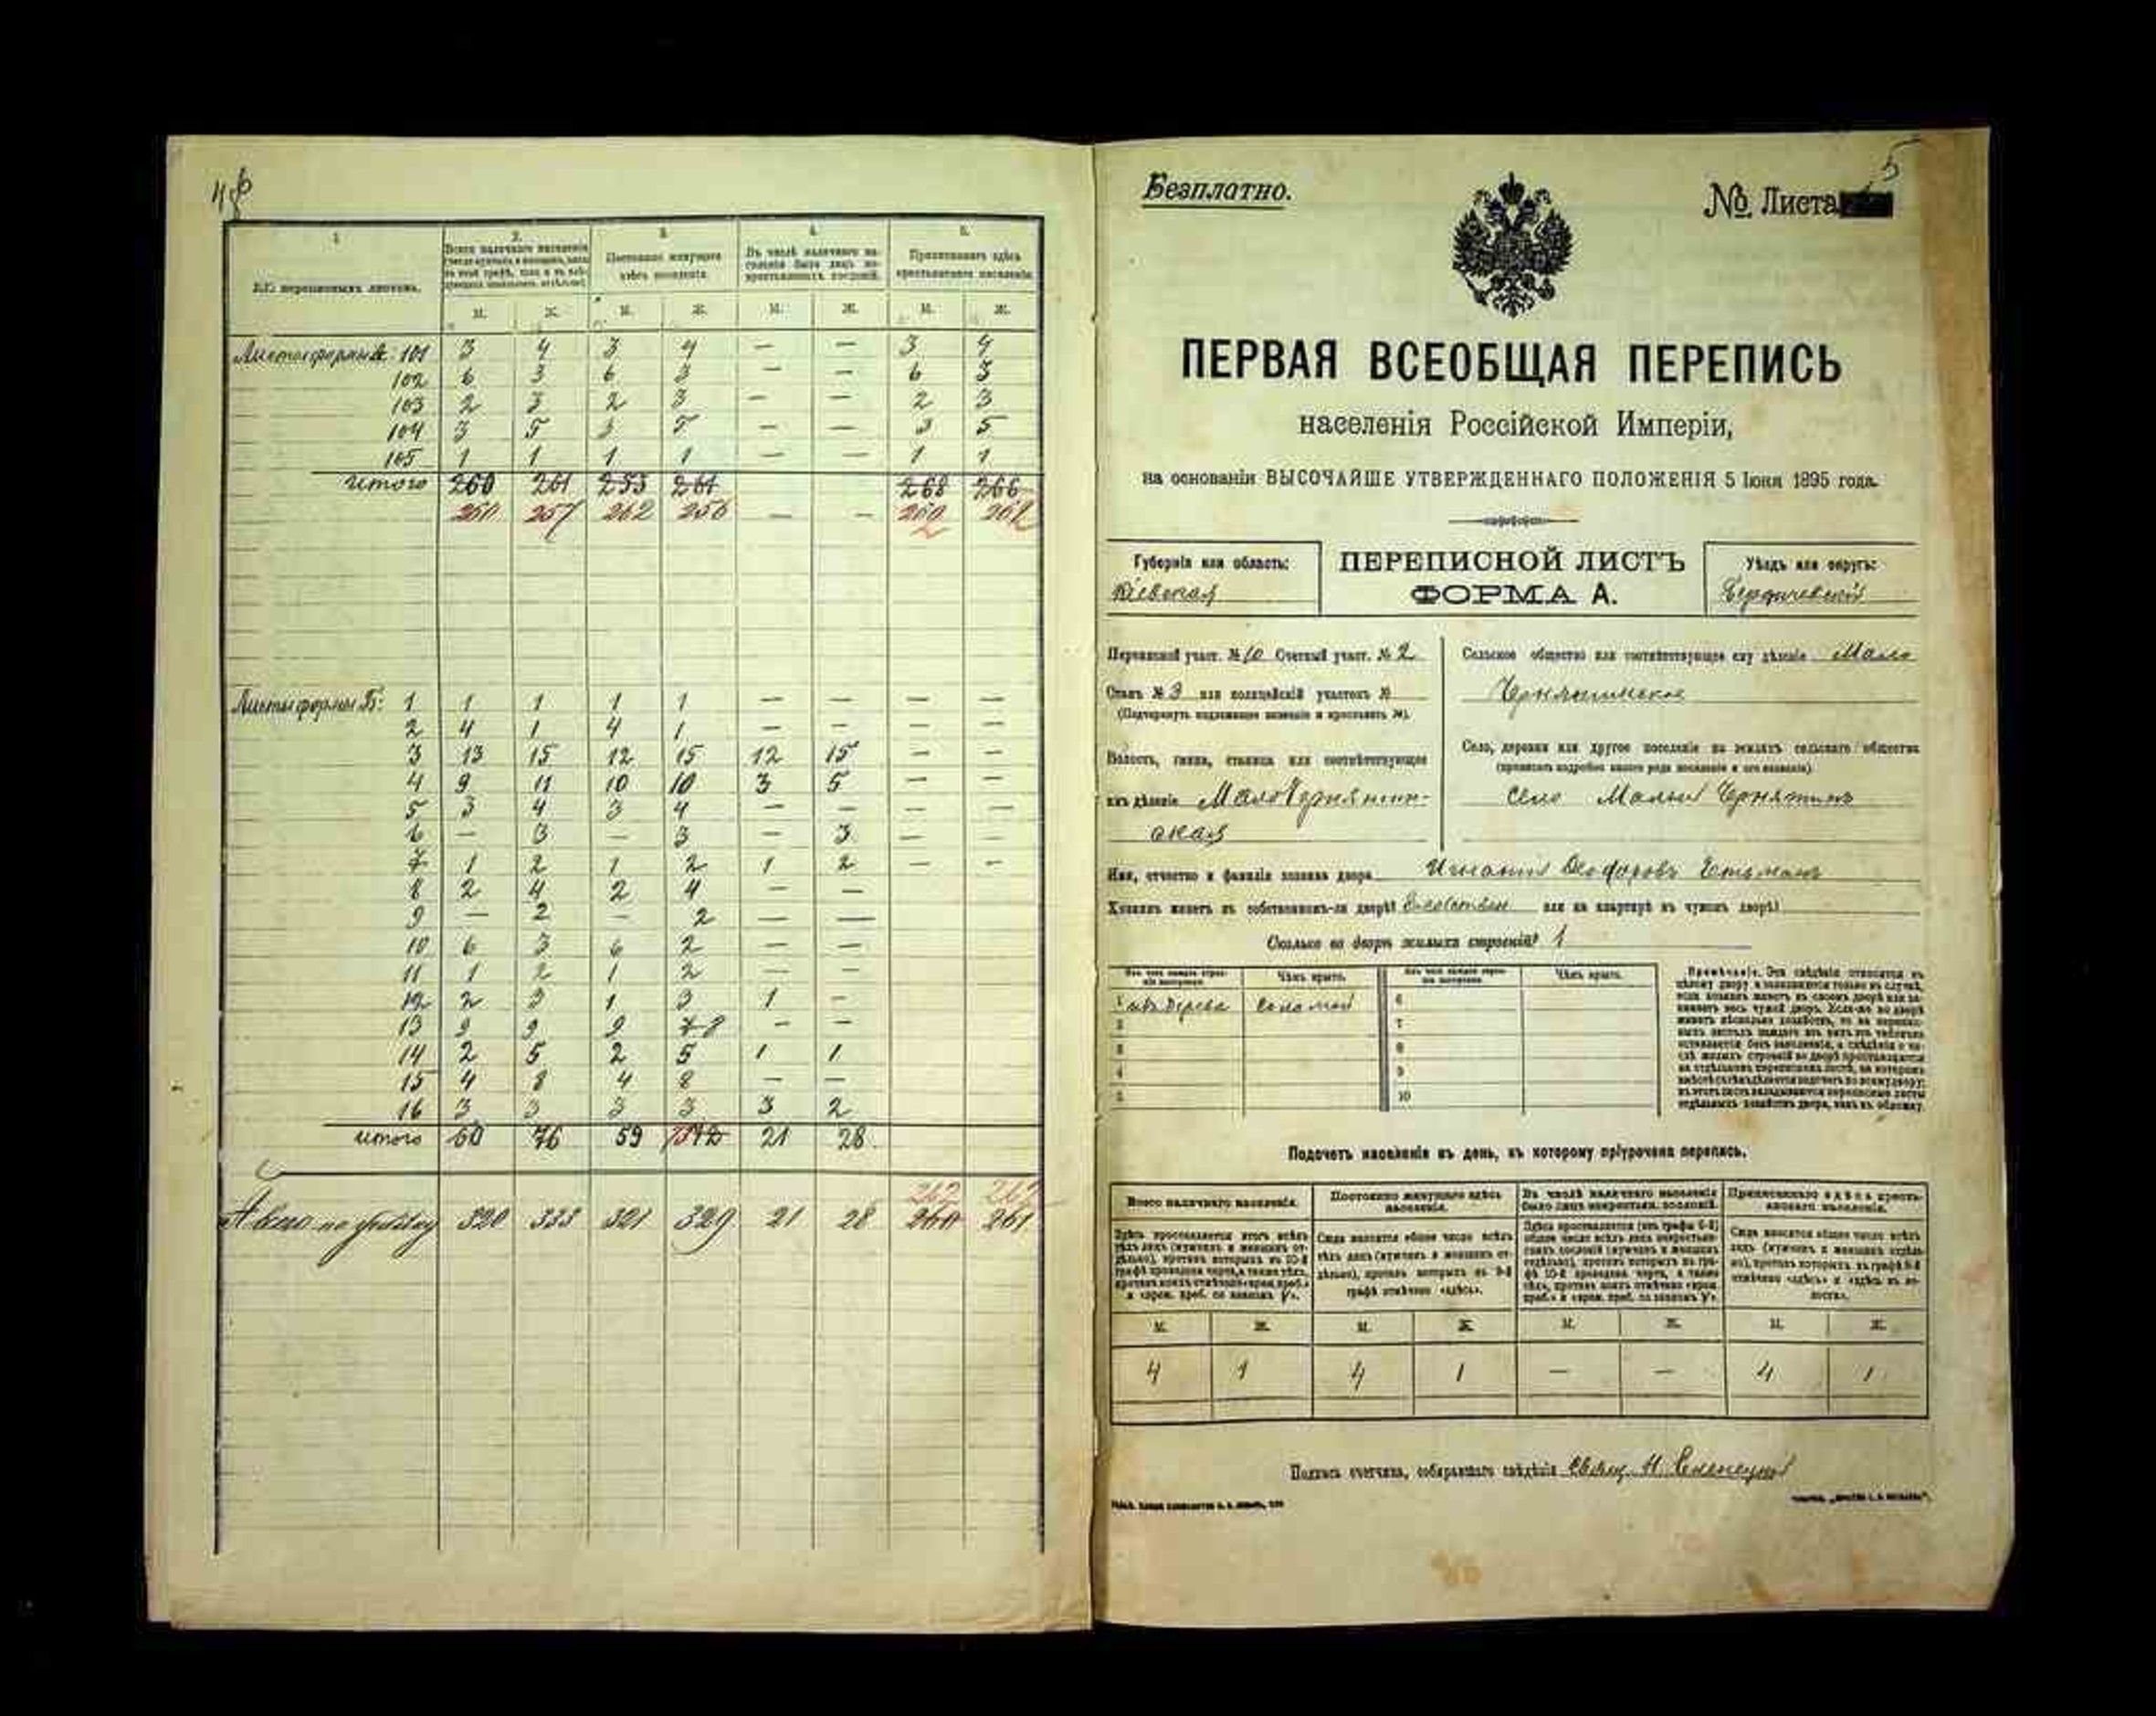 4об
1. 2. 3. 4. 5.
№№ переписныхъ листовъ.
Всего наличнаго населенія
Постоянно живущаго здѣсь населенія
Въ числѣ наличнаго населенія было лицъ некрестьянскихъ сословій.
Приписаннаго здѣсь крестьянскаго населенія.
М. Ж. М. Ж. М. Ж. М. Ж.
Листы формы А: 101 3 4 3 4 — — 3 4
102 6 3 6 3 — — 6 3
103 2 3 2 3 — — 2 3
104 3 5 3 5 — — 3 5
105 1 1 1 1 — — 1 1
итого 260 261 253 261 268 266
257 262 256 — —
Листы формы Б: 1 1 1 1 1 — — — —
2 4 1 4 1 — — — —
3 13 15 12 15 12 15 — —
4 9 11 10 10 3 5 — —
5 3 4 3 4 — — — —
6 — 3 — 3 — 3 — —
7 1 2 1 2 1 2 — —
8 2 4 2 4 — —
9 — 2 — 2 — —
10 6 3 6 2 — —
11 1 2 1 2 — —
12 2 3 1 3 1 —
13 9 9 9 7 8 — —
14 2 5 2 5 1 1
15 4 8 4 8 — —
16 3 3 3 3 3 2
итого 60 76 59 21 28
А всего по участку 320 333 321 329 21 28 260 261
5
Безплатно.
№ Листа
ПЕРВАЯ ВСЕОБЩАЯ ПЕРЕПИСЬ
населенія Россійской Имперіи,
на основаніи ВЫСОЧАЙШЕ УТВЕРЖДЕННАГО ПОЛОЖЕНІЯ 5 Іюня 1895 года.
Губернія или область:
Кіевская
ПЕРЕПИСНОЙ ЛИСТЪ
ФОРМА А.
Уѣздъ или округъ:
Бердичевскій
Переписной участ. № 10 Счетный участ. № 2
Станъ № 3 или полицейскій участокъ №
(Подчеркнуть надлежащее названіе и проставить №).
Волость, гмина, станица или соотвѣтствующее
имъ дѣленіе МалоЧернятин-
ская
Сельское общество или соотвѣтствующее ему дѣленіе Мало
Чернятинское
Село, деревня или другое поселеніе на земляхъ сельскаго общества
(прописать подробно какого рода поселеніе и его названіе)
Село Малый Чернятинъ
Имя, отчество и фамилія хозяина двора Игнатій Феодоровъ Гетьманъ
Хозяинъ живетъ въ собственномъ-ли дворѣ? или на квартирѣ въ чужомъ дворѣ?
Сколько во дворѣ жилыхъ строеній? 1
Изъ чего каждое строеніе построено. Чѣмъ крыто. Изъ чего каждое строеніе построено. Чѣмъ крыто.
1 изъ дерева соломой 6
2 7
3 8
4 9
5 10
Примѣчаніе. Эти свѣдѣнія относятся къ
цѣлому двору и заполняются только въ случаѣ,
если хозяинъ живетъ въ своемъ дворѣ или занимаетъ весь чужой дворъ.
Подсчетъ населенія въ день, къ которому пріурочена перепись.
Всего наличнаго населенія.
Постоянно живущаго здѣсь населенія.
Въ числѣ наличнаго населенія было лицъ некрестьян. сословій.
Приписаннаго здѣсь крестьянскаго населенія.
М. Ж. М. Ж. М. Ж. М. Ж.
4 1 4 1 — — 4 1
Подпись счетчика, собиравшаго свѣдѣнія Свящ. Н.